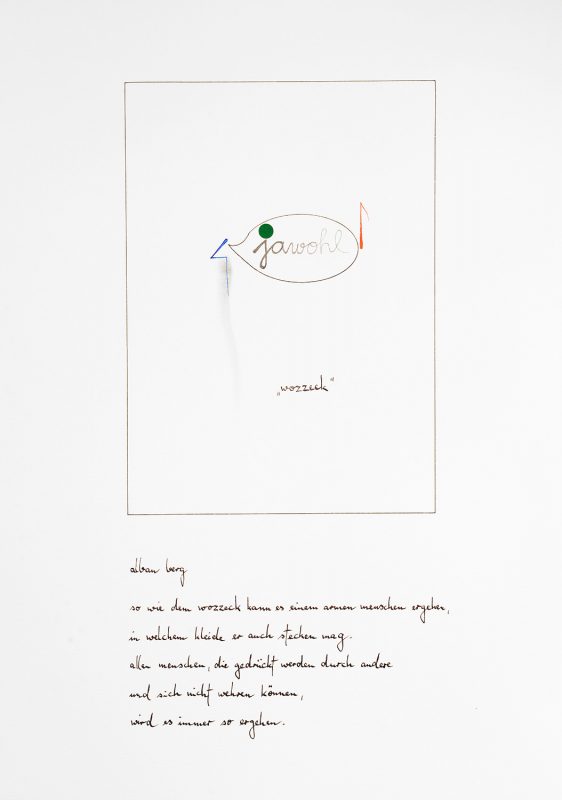 jawohl
„wozzeck"
alban berg
so wie dem wozzeck kann es einem armen menschen ergehen,
in welchem kleide er auch stecken mag.
allen menschen, die gedrückt werden durch andere
und sich nicht wehren können,
wird es immer so ergehen.